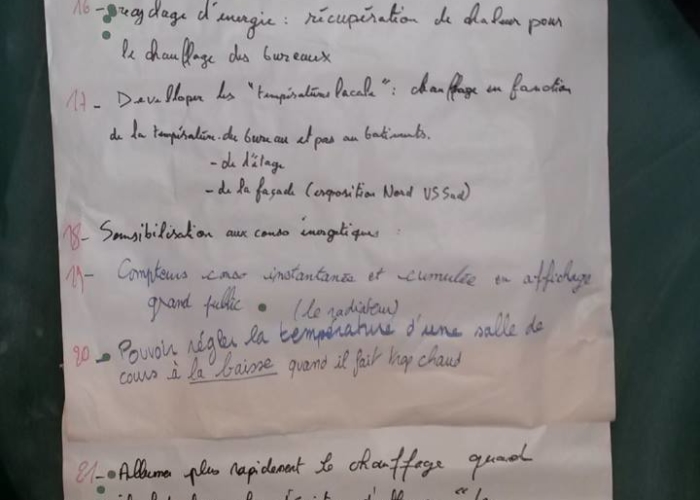 16- recyclage d'énergie : récupération de chaleur pour
le chauffage des bureaux
17- Developper les "températures locale" : chauffage en fonction
de la température du bureau et pas au batiments.
- de l'étage
- de la façade (exposition Nord VS Sud)
18- Sensibilisation aux conso énergétiques :
19- Compteurs conso instantanée et cumulée en affichage
grand public (le radiateur)
20- Pouvoir régler la température d'une salle de
cours à la baisse quand il fait trop chaud
21- Allumer plus rapidement le chauffage quand